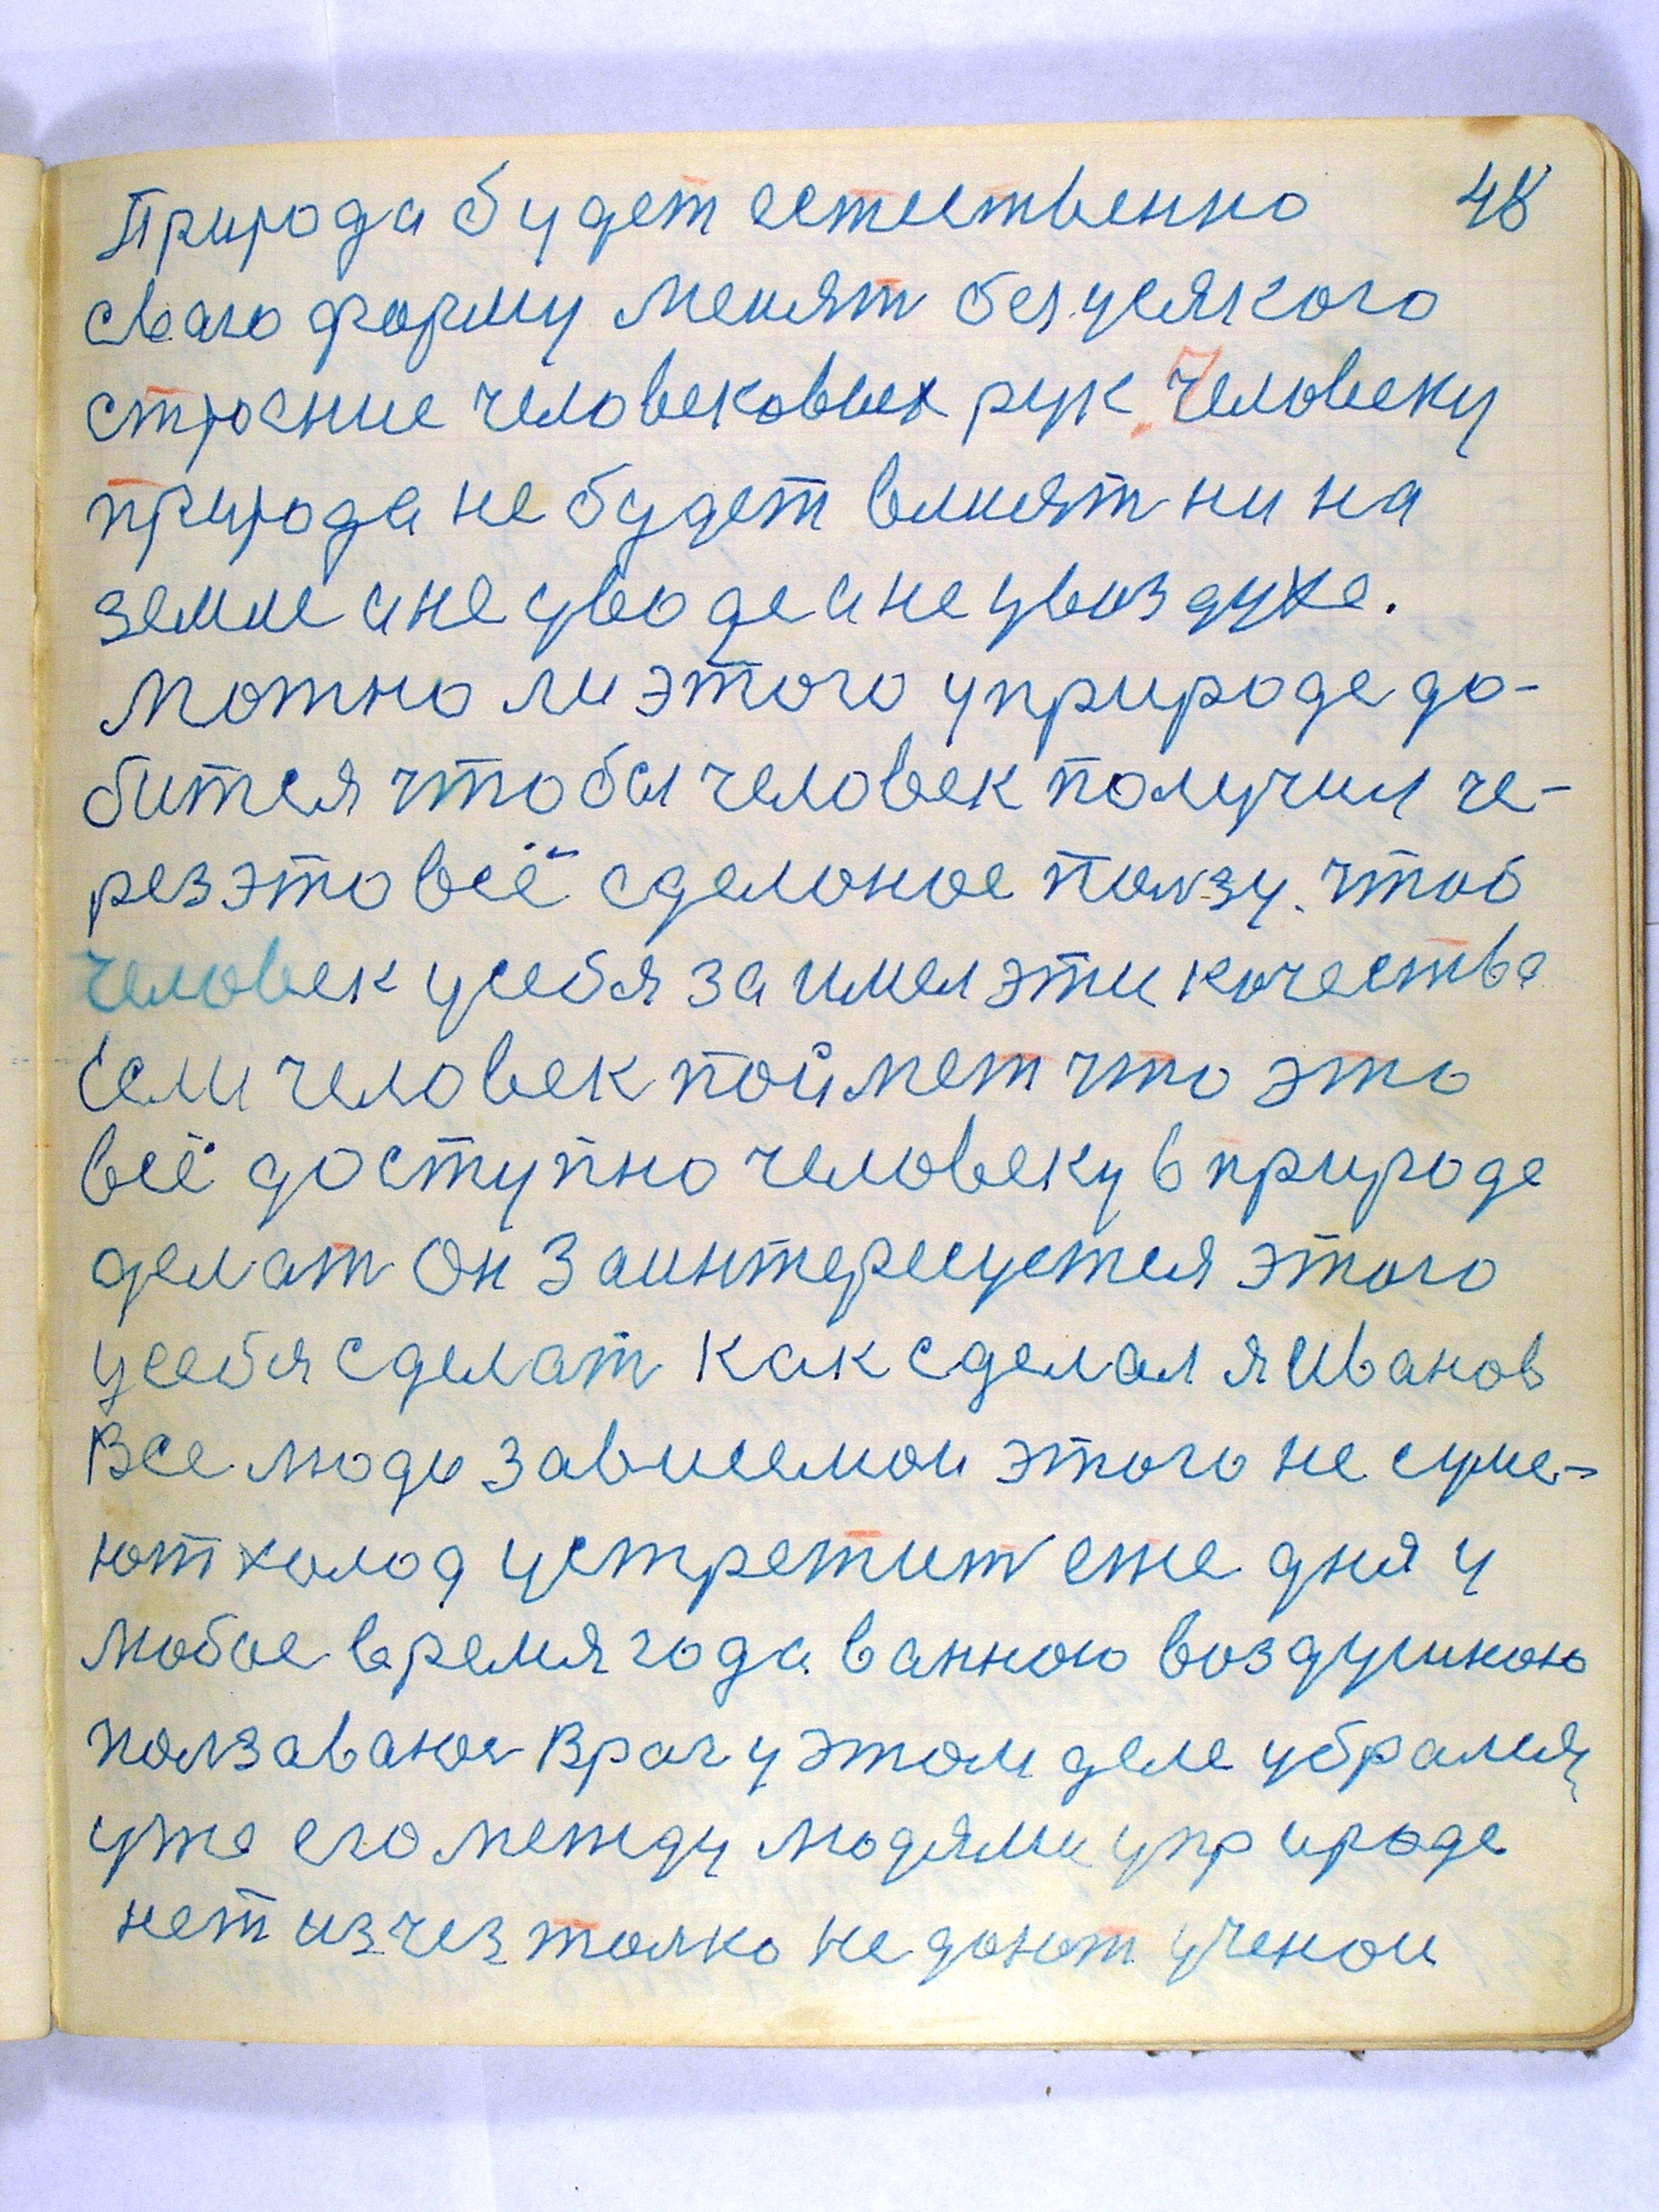 Природа будет естественно 48
сваю форму менят без усякого
строение человековых рук. Человеку
природа не будет влият ни на
земле а не у воде а не у воздухе.
Можно ли этого у природе до-
битея чтобы человек получил че-
рез это всё сделоное ползу. чтоб
человек у себя за имел эти качества
Если человек поймет что это
всё доступно человеку в природе
делат Он Заинтересуетея этого
у себя сделат как сделал я Иванов
Все люди зависемои этого не суме-
ют холод устретит еже дня у
любое время года ванною воздушною
ползаваное Врач у этом деле убралея
уже его между людями у природе
нет изчез толко не доют ученои